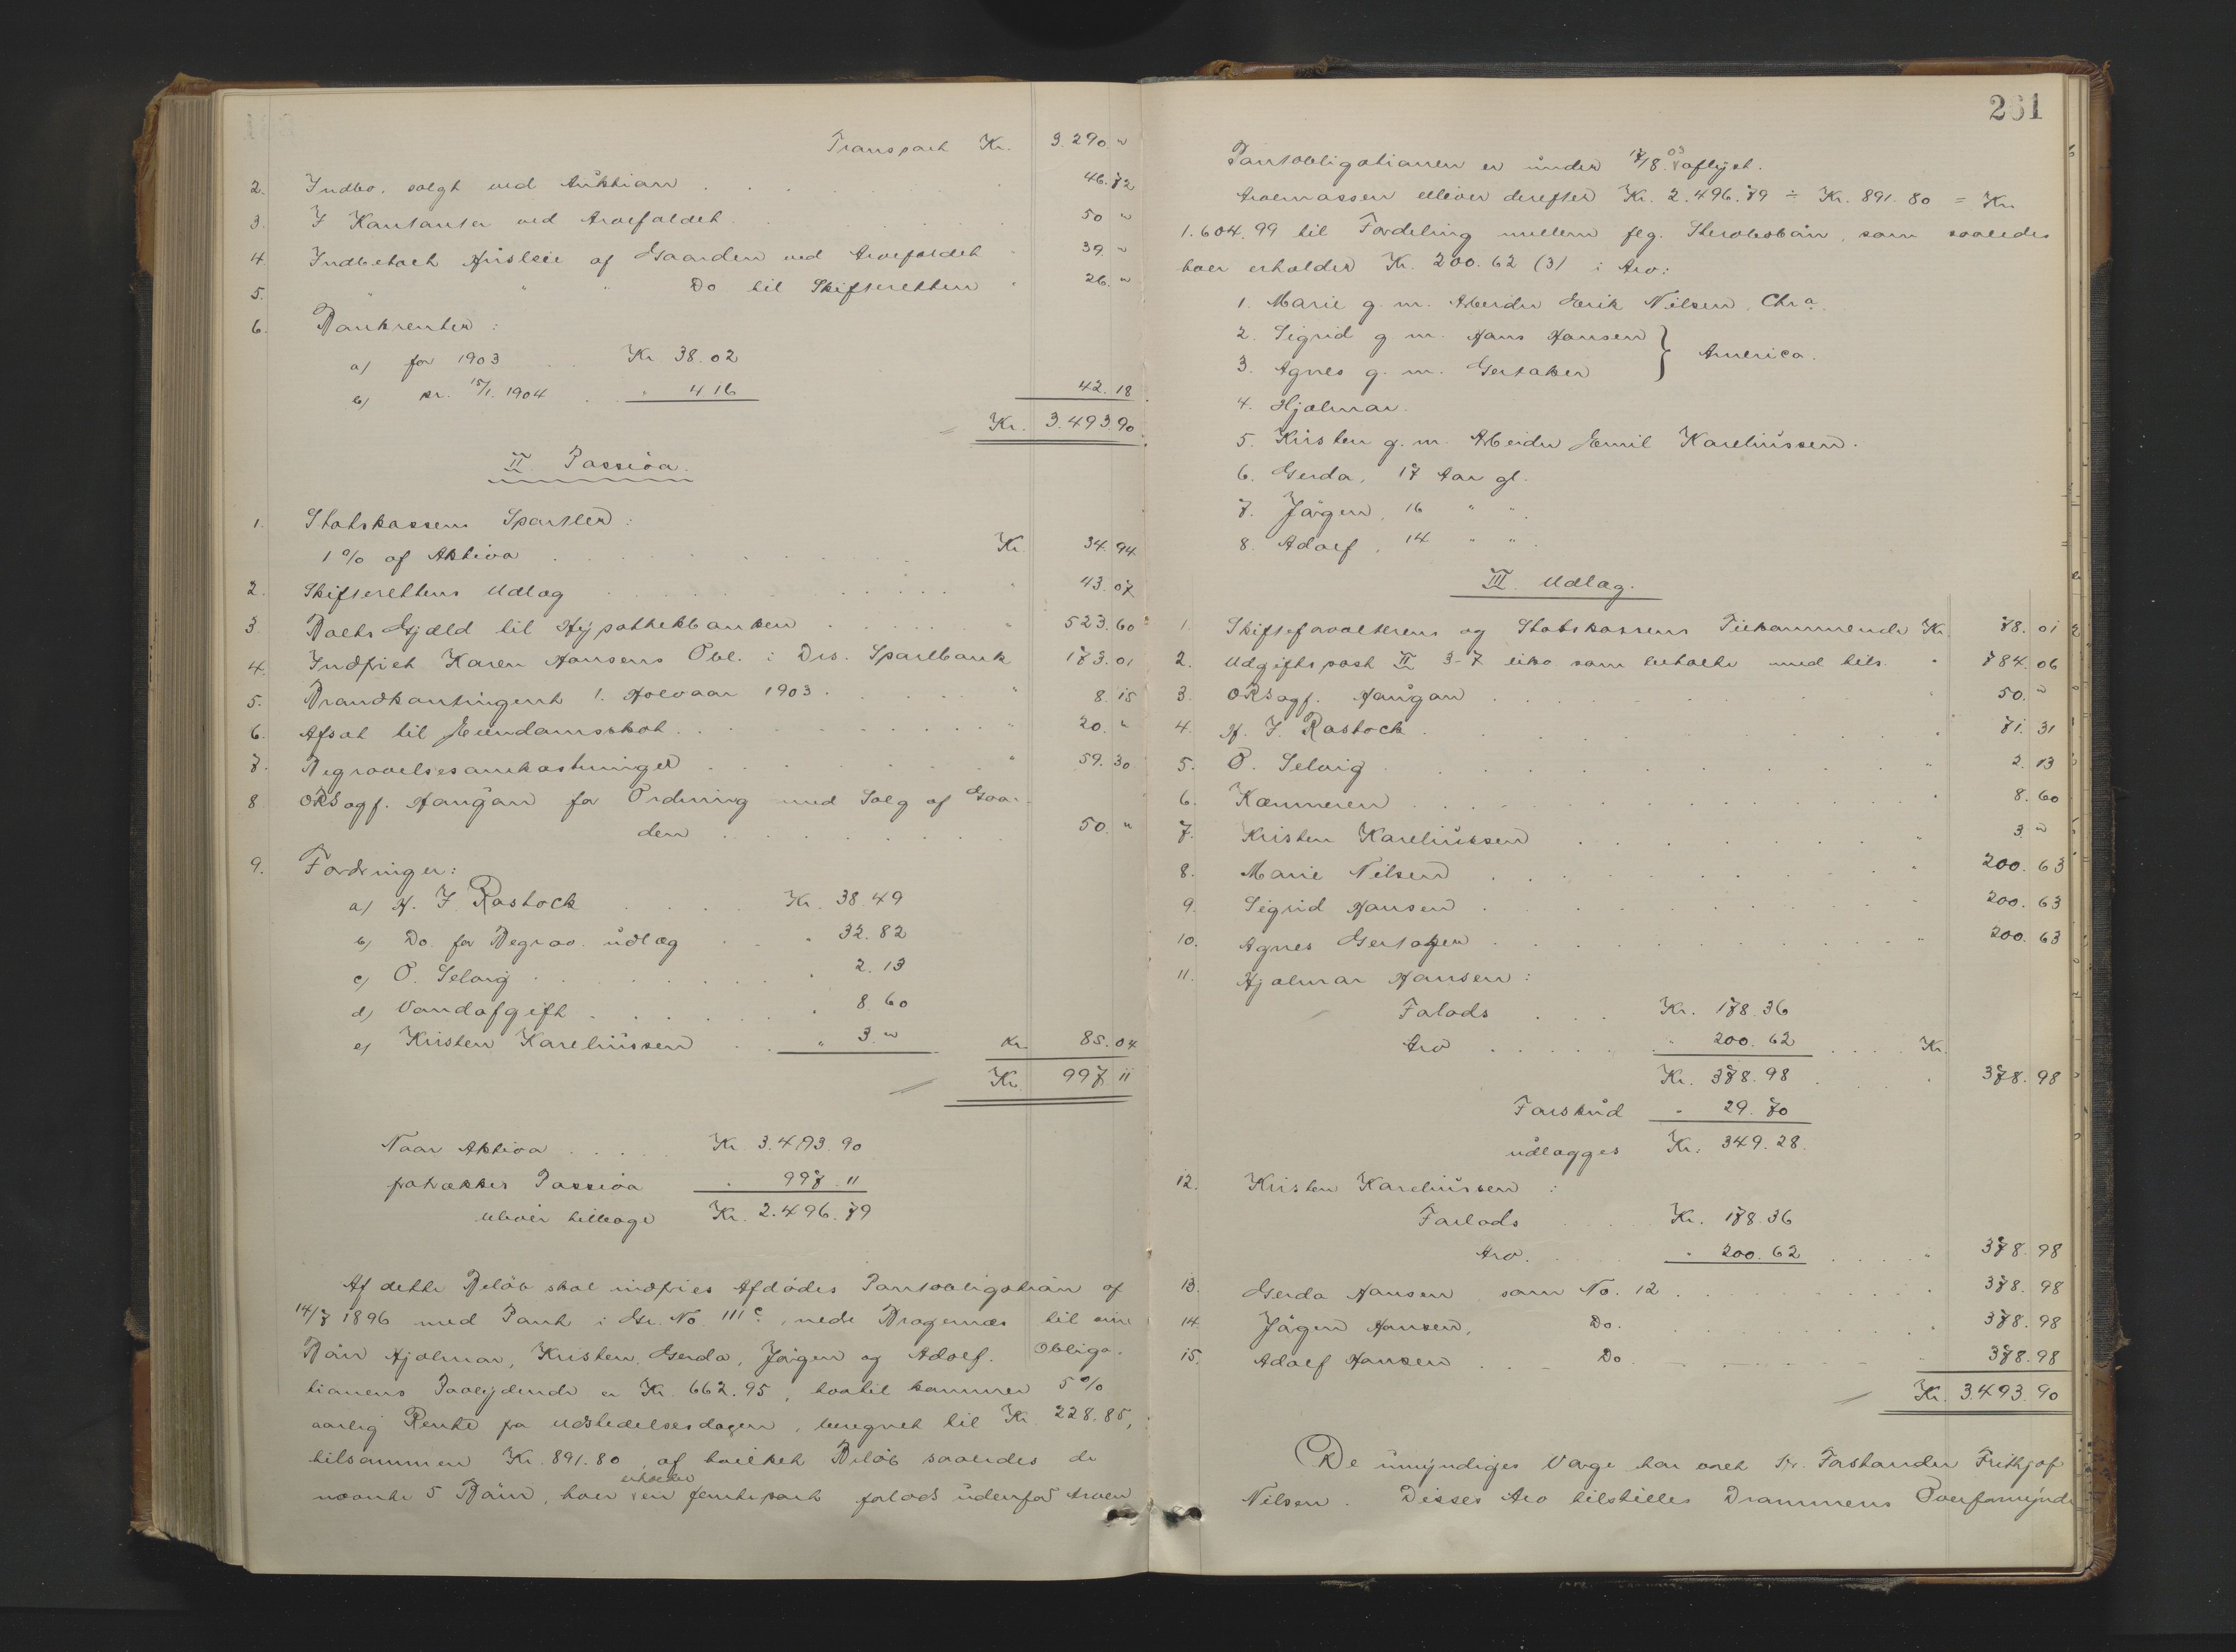 Transport Kr. 3.290 "
2. Indbo, solgt ved Auktion . . . 46.72
3. I Kontanter ved Arvefaldet . . . 50 "
4. Indbetalt Husleie af Gaarden ved Arvefaldet " 39. "
5. " " " Do til Skifteretten " 26. "
6. Bankrenter:
a) for 1903 . . Kr. 38.02
b) pr. 15/1. 1904 . " 4 16 42.18
Kr. 3.493.90
II. Passiva.
1. Statskassens Sportler:
1 % af Aktiva . . . Kr. 34.94
2. Skifterettens Udlæg . . . " 43.07
3. Boets Gjæld til Hypothekbanken . . . " 523.60
4. Indfriet Karen Hansens Obl. i Drs. Sparebank 173.01
5. Brandkontingent 1. Halvaar 1903 . . . " 8.15
6. Afsat til Eiendomsskat . . . " 20. "
7. Begravelsesomkostninger . . . " 59.30
8. ORSagf. Haugan for Ordning med Salg af Gaar-
den . . . 50. "
9. Fordringer:
a) H. J. Rastock . . . Kr. 38.49
b) Do. for Begrav. udlæg . . " 32.82
c) O. Selvig . . . " 2.13
d) Vandafgift . . . " 8.60
e) Kristen Kareliussen . . " 3. " Kr. 85.04
Kr. 997 11
Naar Aktiva . . . Kr. 3.493.90
fratrækkes Passiva " 997.11
bliver tilbage Kr. 2.496.79
Af dette Beløb skal indfries Afdødes Pantobligation af
14/7 1896 med Pant i Gr. No. 111 c., nedre Bragernæs til sine
Børn Hjalmar, Kristen, Gerda, Jørgen og Adolf. Obliga-
tionens Paalydende er Kr. 662.95, hvortil kommer 5 %
aarlig Rente fra Udstedelsesdagen, beregnet til Kr. 228.85,
tilsammen Kr. 891.80, af hvilket Beløb saaledes de
nævnte 5 Børn, hver erholder en femtepart forlods udenfor Arven
261
Pantobligationen er under 17/8.03 aflyst.
Arvemassen bliver derefter Kr. 2.496.79 ÷ Kr. 891.80 = Kr.
1.604.99 til Fordeling mellem flg. Sterbobørn, som saaledes
hver erholder Kr. 200.62 (3) i Arv:
1. Marie g. m. Arbeider Erik Nilsen, Chr a.
2. Sigrid g. m. Hans Hansen } America.
3. Agnes g. m. Gertaker
4. Hjalmar.
5. Kristen g. m. Arbeider Emil Kareliussen.
6. Gerda, 17 Aar gl.
7. Jørgen, 16 " "
8. Adolf, 14 " " .
III. Udlæg.
1. Skifteforvalterens og Statskassens Tilkommende Kr. 78.01
2. Udgiftspost II 3-7 incl. som betalte med tils. " 784.06
3. ORSagf. Haugan . . . " 50. "
4. H. J. Rastock . . . " 71.31
5. O. Selvig . . . " 2.13
6. Kæmneren . . . " 8.60
7. Kristen Kareliussen . . . " 3 "
8. Marie Nilsen . . . " 200.63
9. Sigrid Hansen . . . " 200.63
10. Agnes Gertaker . . . " 200.63
11. Hjalmar Hansen:
Forlods . . . Kr. 178.36
Arv . . . " 200.62 . . . Kr.
Kr. 378.98 . . . " 378.98
Forskud " 29.70
udlægges Kr. 349.28.
12. Kristen Kareliussen:
Forlods . . . Kr. 178.36
Arv. . . " 200.62 . . . " 378.98
13. Gerda Hansen som No. 12 . . . " 378.98
14. Jørgen Hansen, Do. . . . " 378.98
15. Adolf Hansen . . . Do . . . " 378.98
Kr. 3.493.90
De umyndiges Værge har været Hr. Forstander Frithjof
Nilsen. Disses Arv tilstilles Drammens Overformynde